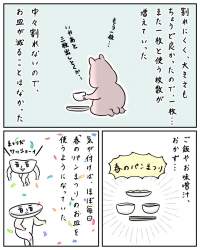 割れにくく、大きさも
ちょうど良かったので、一枚…
また一枚と使う枚数が
増えていった。
もう一枚…
いや、あと
三枚出しとくか。
中々割れないので、
お皿が減ることはなかった
ご飯やお味噌汁、
おかず…
春のパンまつり
気が付けば、ほぼ毎日
春のパンまつりのお皿を
使うようになっていた。